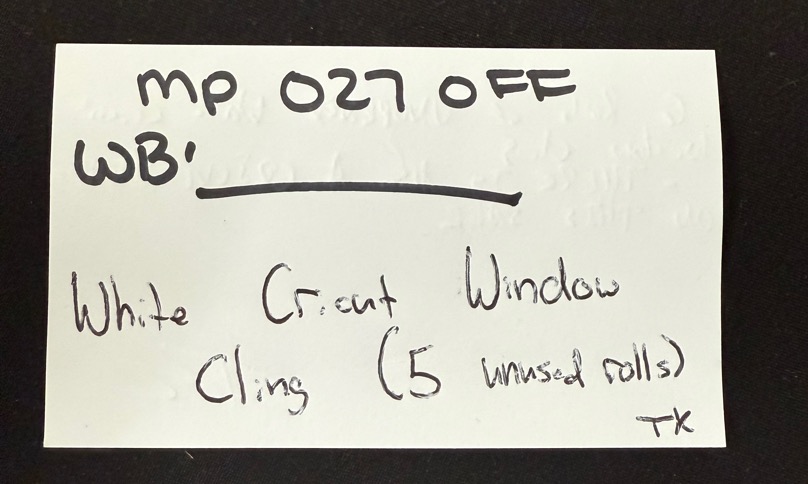 MP 027 OFF
WB'
White Cricut Window
Cling (5 unused rolls)
TK